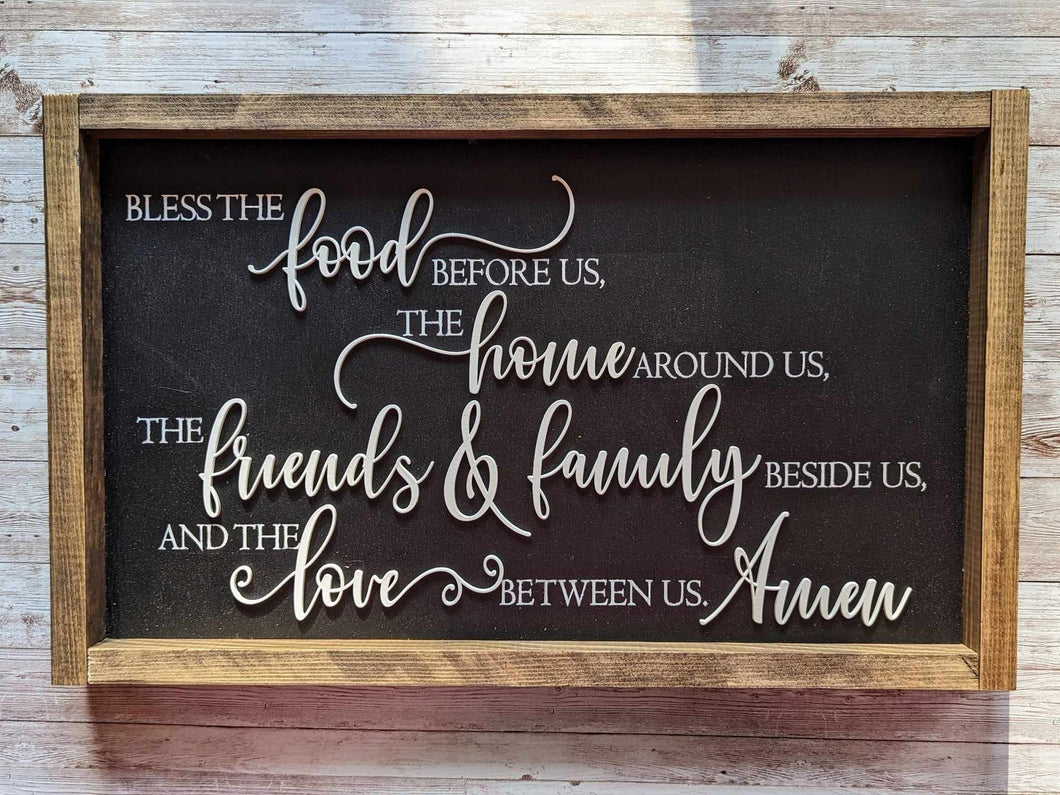 BLESS THE food BEFORE US,
THE home AROUND US,
THE friends & family BESIDE US,
AND THE love BETWEEN US. Amen